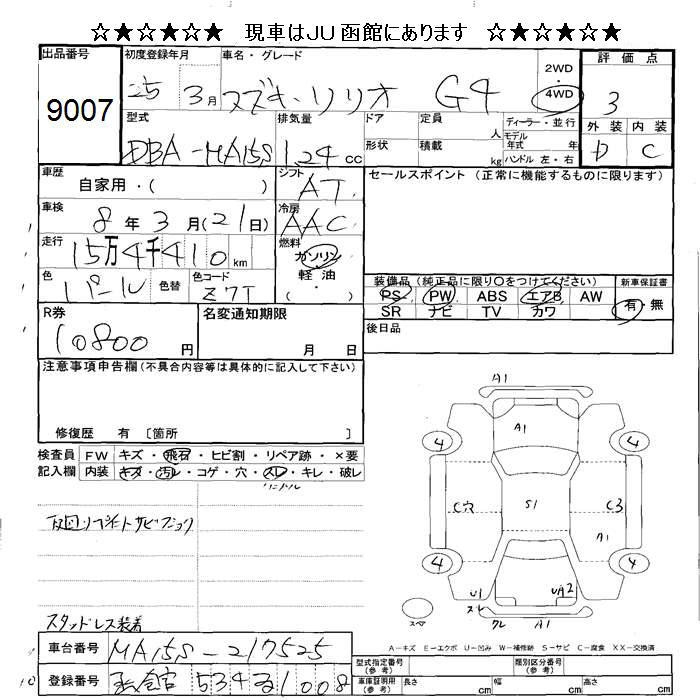 ☆★☆★☆★ 現車はJU函館にあります ☆★☆★☆★
出品番号 9007
初度登録年月 25 3月
車名・グレード スズキ・ソリオ G4
2WD ・ 4WD
評価点 3
型式 DBA-MA15S
排気量 1.24 cc
ドア 形状
定員 人
積載 kg
ディーラー・並行
モデル年式 年
ハンドル 左・右
外装 内装
D C
車歴 自家用・( )
シフト AT
セールスポイント (正常に機能するものに限ります)
車検 8年3月(21日)
冷房 AAC
走行 15万4千410km
燃料 ガソリン 軽油 ・( )
色 パール 色替
色コード Z7T
装備品 (純正品に限り〇をつけてください)
新車保証書
PS PW ABS エアB AW
有・無
SR ナビ TV カワ
R券 10800円
名変通知期限 月 日
後日品
注意事項申告欄 (不具合内容等は具体的に記入して下さい)
修復歴 有 〔箇所 〕
検査員 FW キズ・飛石・ヒビ割・リペア跡・×要
記入欄 内装 キズ・汚れ・コゲ・穴・スレ・キレ・破レ
A1
A1
4 4
C穴 S1 C3
A1
4 4
U1 UA2
スレ
クレ A1
スペア
スタッドレス装着
A-キズ E-エクボ U-凹み W-補修跡 S-サビ C-腐食 XX-交換済
車台番号 MA15S-217525
登録番号 函館 534 1008
型式指定番号(参考)
類別区分番号(参考)
車庫証明用(参考) 長さ cm 幅 cm 高さ cm